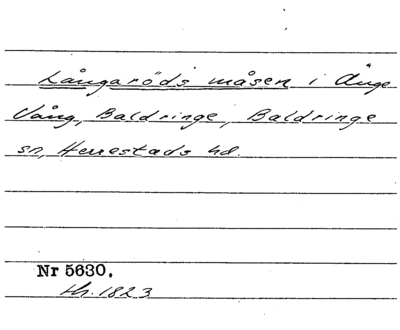 Långaröds måsen i Änge
Vång, Baldringe, Baldringe
sn, Herrestads hd.
Nr 5630.
th. 1823